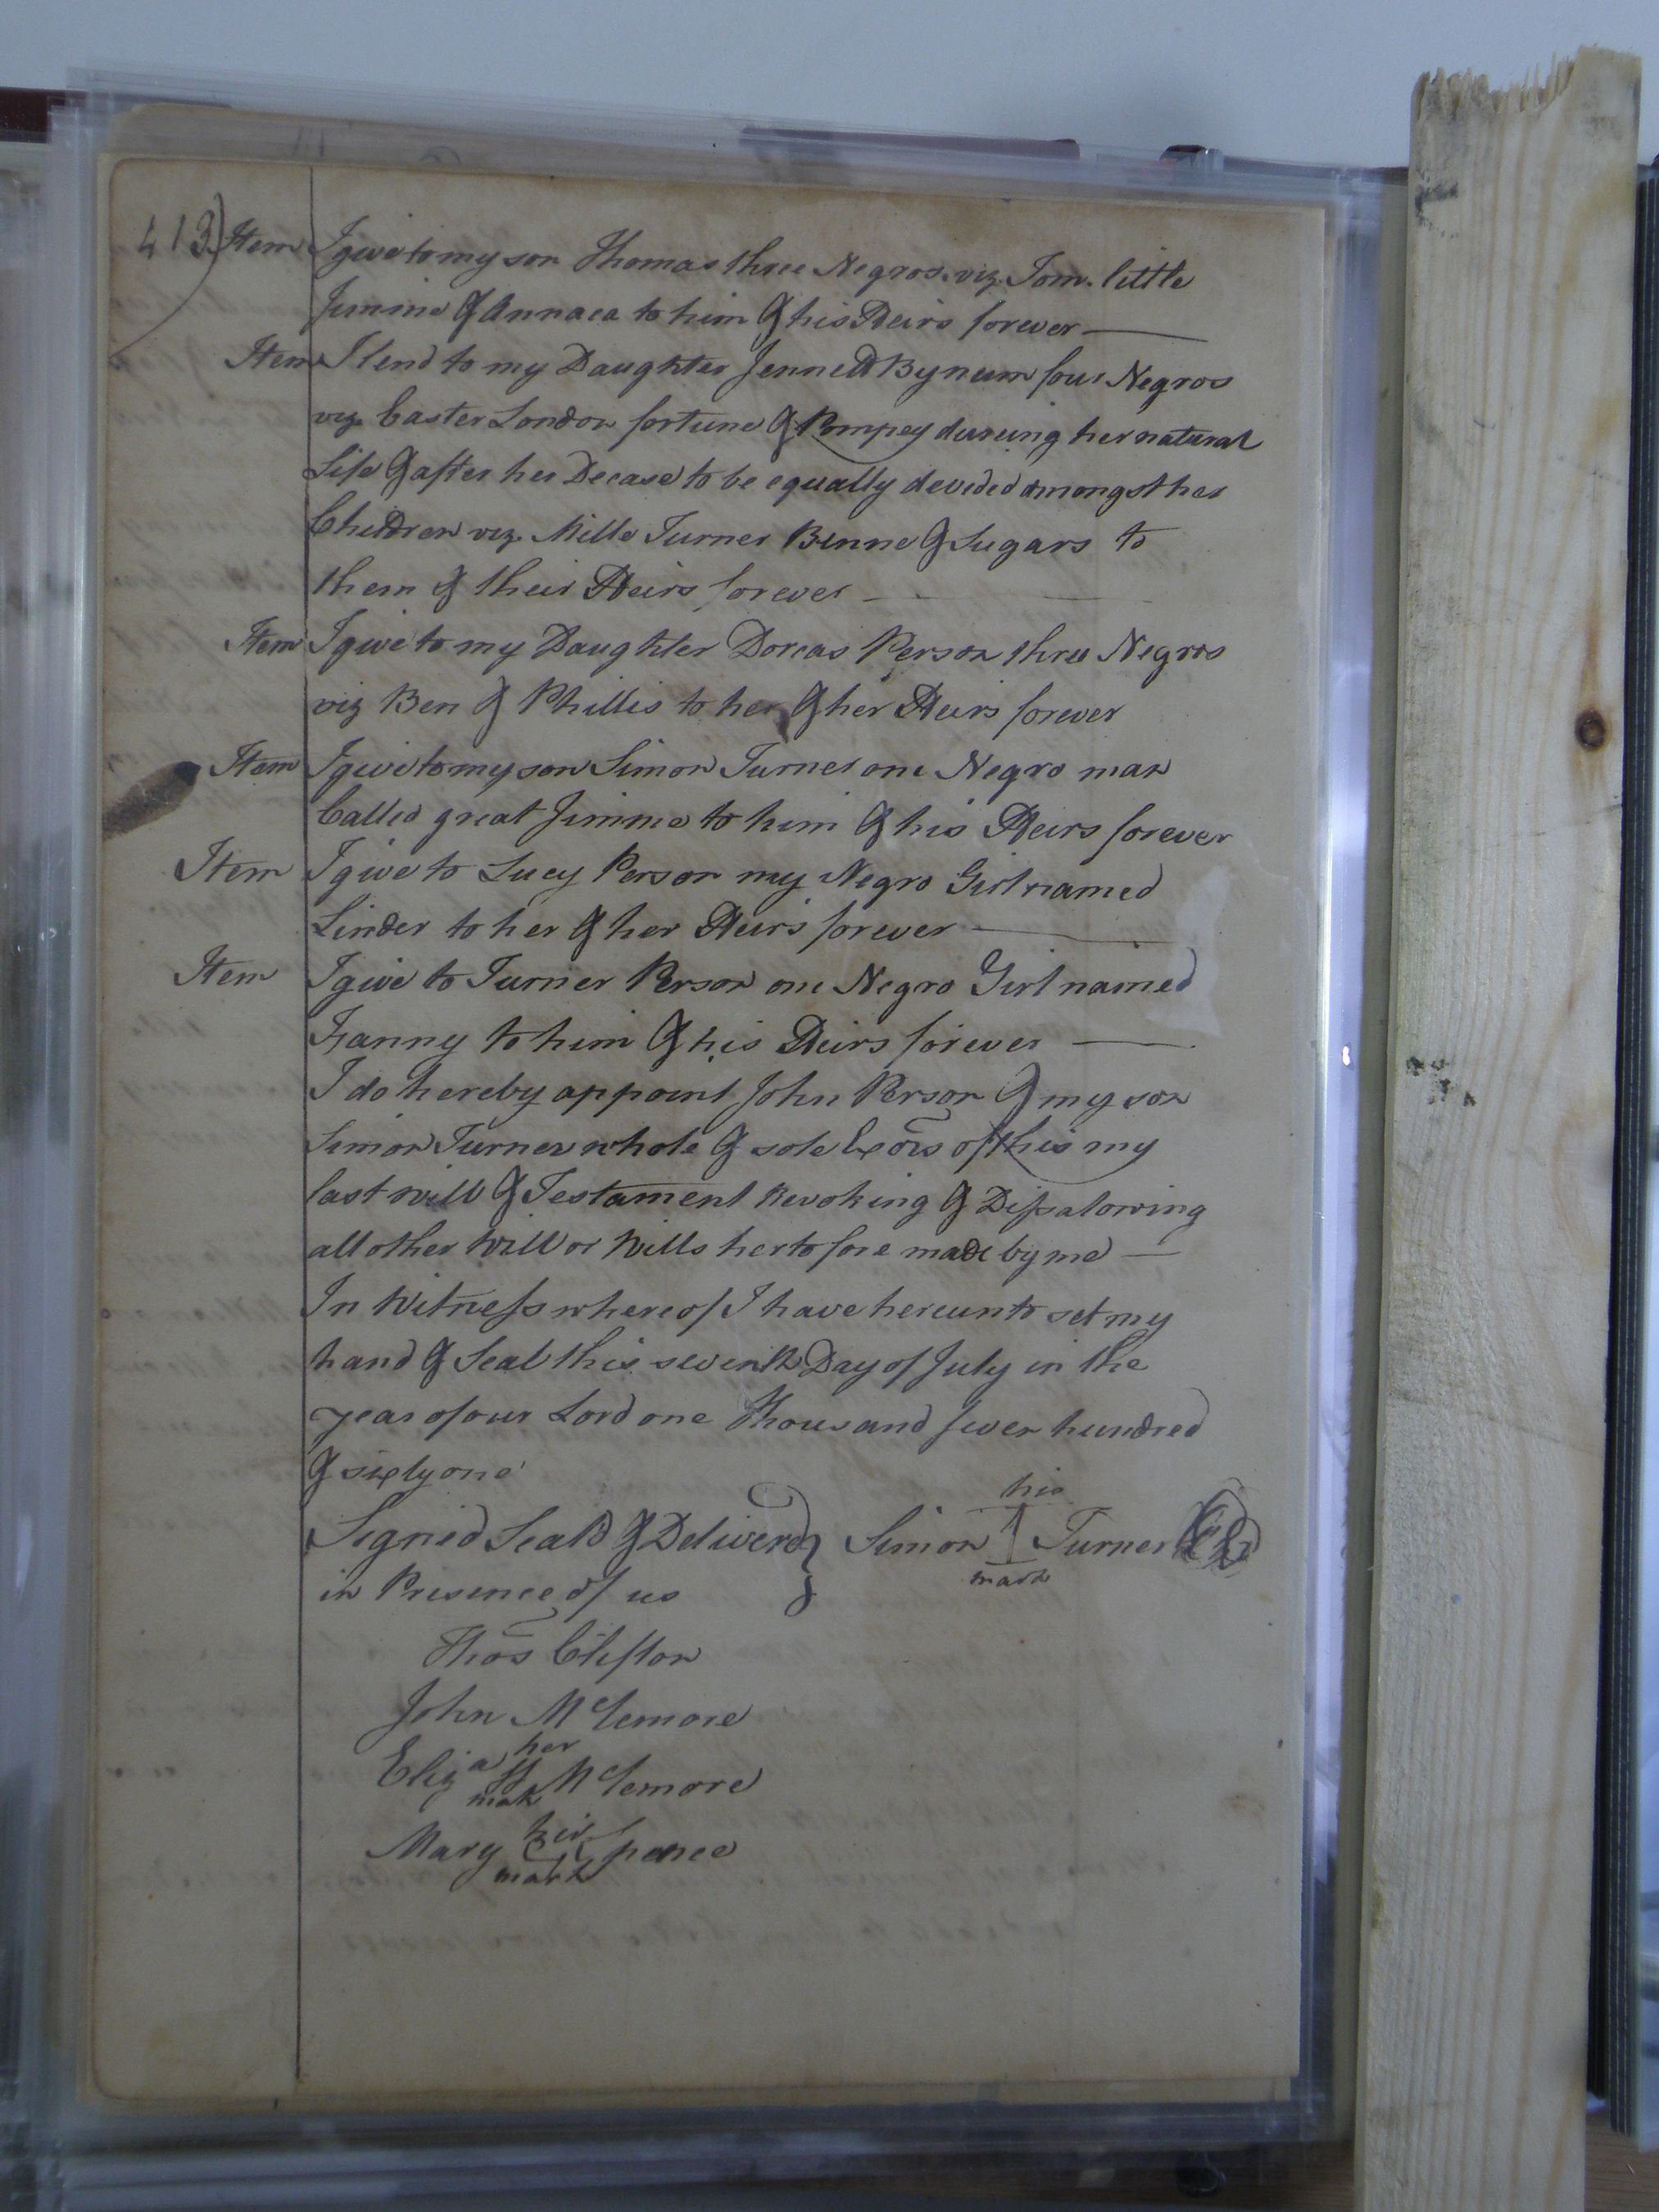 413) Item I give to my son Thomas three Negros. viz. Tom. little
Jimme & Annaca to him & his Heirs forever
Item I lend to my Daughter Jennett Bynum four Negros
viz. Caster London fortune & Pompey dureing her natural
Life & after her Decase to be equally devided amongst her
Children viz. Mille Turner Benne & Sugars to
them & their Heirs forever
Item I give to my Daughter Dorcas Person three Negros
viz Ben & Phillis to her & her Heirs forever
Item I give to my son Simon Turner one Negro man
Called great Jimme to him & his Heirs forever
Item I give to Lucy Person my Negro Girl named
Linder to her & her Heirs forever
Item I give to Turner Person one Negro Girl named
Fanny to him & his Heirs forever
I do hereby appoint John Person & my son
Simon Turner whole & sole Exors of this my
last will & Testament Revoking & Dissalowing
all other Will or Wills hertofore made by me
In Witness whereof I have hereunto set my
hand & Seal this seventh Day of July in the
year of our Lord one Thousand seven hundred
& sixty one
his
Signed Seald & Deliverd } Simon Turner
mark
in Presence of us
Thos Clifton
John McLemore
her
Eliza McLemore
mak
her
Mary Spence
mark